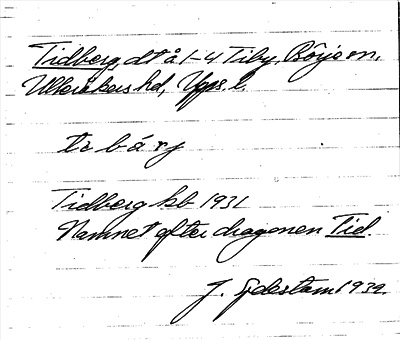 Tidberg dt å 1-4 Tiby, Börje sn,
Ulleråkers hd, Upps. l.
ti b á rj
Tidberg kb 1931
Namnet efter dragonen Tid.
J. Sjdestam 1939.